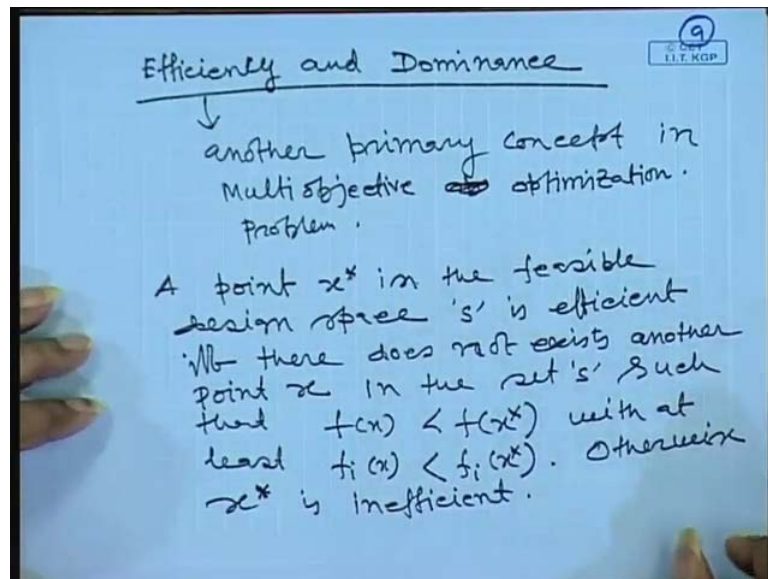 9
© CET
I.I.T. KGP
Efficiency and Dominance
another primary concept in
Multiobjective optimization.
Problem.
A point x* in the feasible
design space 's' is efficient
iff there does not exists another
point x in the set 's' such
that f(x) < f(x*) with at
least fi(x) < fi(x*). Otherwise
x* is inefficient.